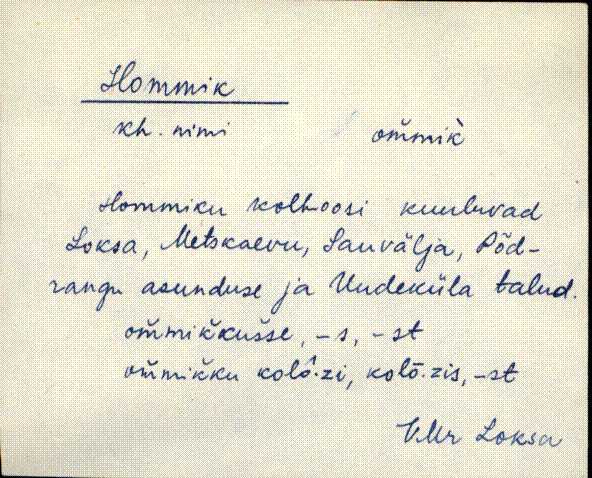 Hommik
kh. nimi om̆mik̀
Hommiku kolhoosi kuuluvad
Loksa, Metskaevu, Sauvälja, Põd-
rangu asunduse ja Uudeküla talud.
om̆mik̆kus̆se, -s, -st
om̆mik̆ku kolô·zi, kolō·zis, -st
VMr Loksa